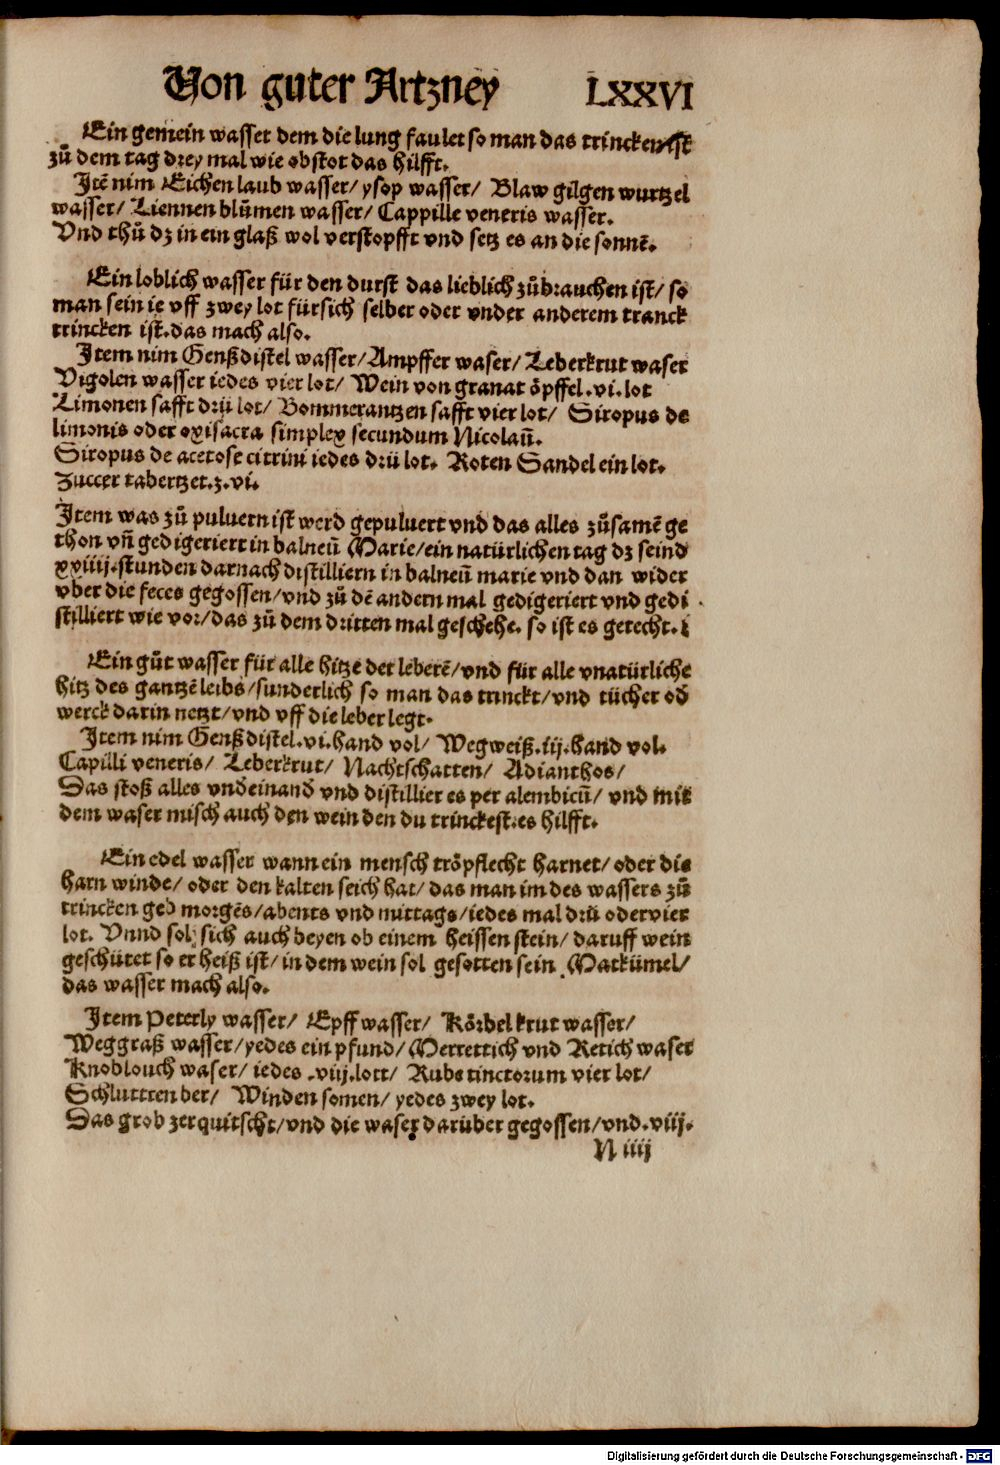 Von guter Artzney LXXVI
Ein gemein wasser dem die lung faulet so man das trincken ist
zů dem tag drey mal wie obstot das hilfft.
Itē nim Eichen laub wasser/ ysop wasser/ Blaw gilgen wurtzel
wasser/ Liennen blůmen wasser/ Cappille veneris wasser.
Vnd thů dz in ein glaß wol verstopfft vnd setz es an die sonnē.
Ein loblich wasser für den durst das lieblich zůbrauchen ist/ so
man sein ie vff zwey lot für sich selber oder vnder anderem tranck
trincken ist. das mach also.
Item nim Genßdistel wasser/ Ampffer waser/ Leberkrut waser
Vigolen wasser iedes vier lot/ Wein von granat öpffel .vi. lot
Limonen safft drü lot/ Bommerantzen safft vier lot/ Siropus de
limonis oder oxisacra simplex secundum Nicolaū.
Siropus de acetose citrini iedes drü lot. Roten Sandel ein lot.
Zuccer tabertzet. ʒ. vi.
Item was zů puluern ist werd gepuluert vnd das alles zůsamē ge
thon vñ gedigeriert in balneū Marie/ ein natürlichen tag dz seind
xxiiij. stunden darnach distilliern in balneū marie vnd dan wider
vber die feces gegossen/ vnd zů dē andern mal gedigeriert vnd gedi
stilliert wie vor/ das zů dem dritten mal geschehe. so ist es gerecht.
Ein gůt wasser für alle hitze der leberē/ vnd für alle vnatürliche
hitz des gantzē leibs/ sunderlich so man das trinckt/ vnd tücher od̄
werck darin netzt/ vnd vff die leber legt.
Item nim Genßdistel .vi. hand vol/ Wegweiß .iij. hand vol.
Capilli veneris/ Leberkrut/ Nachtschatten/ Adianthos/
Das stoß alles vnd̄einand̄ vnd distillier es per alembicū/ vnd mit
dem waser misch auch den wein den du trinckest. es hilfft.
Ein edel wasser wann ein mensch tröpflecht harnet/ oder die
harn winde/ oder den kalten seich hat/ das man im des wassers zů
trincken geb morgēs/ abents vnd mittags/ iedes mal drü oder vier
lot. Vnnd sol sich auch beyen ob einem heissen stein/ daruff wein
geschütet so er heiß ist/ in dem wein sol gesotten sein Matkümel/
das wasser mach also.
Item Peterly wasser/ Epff wasser/ Körbel krut wasser/
Weggraß wasser/ yedes ein pfund/ Merrettich vnd Retich waser
Knoblouch waser/ iedes .viij. lott/ Rube tinctorum vier lot/
Schluttren ber/ Winden somen/ yedes zwey lot.
Das grob zerquitscht/ vnd die waser darüber gegossen/ vnd .viij.
N iiij
Digitalisierung gefördert durch die Deutsche Forschungsgemeinschaft - DFG